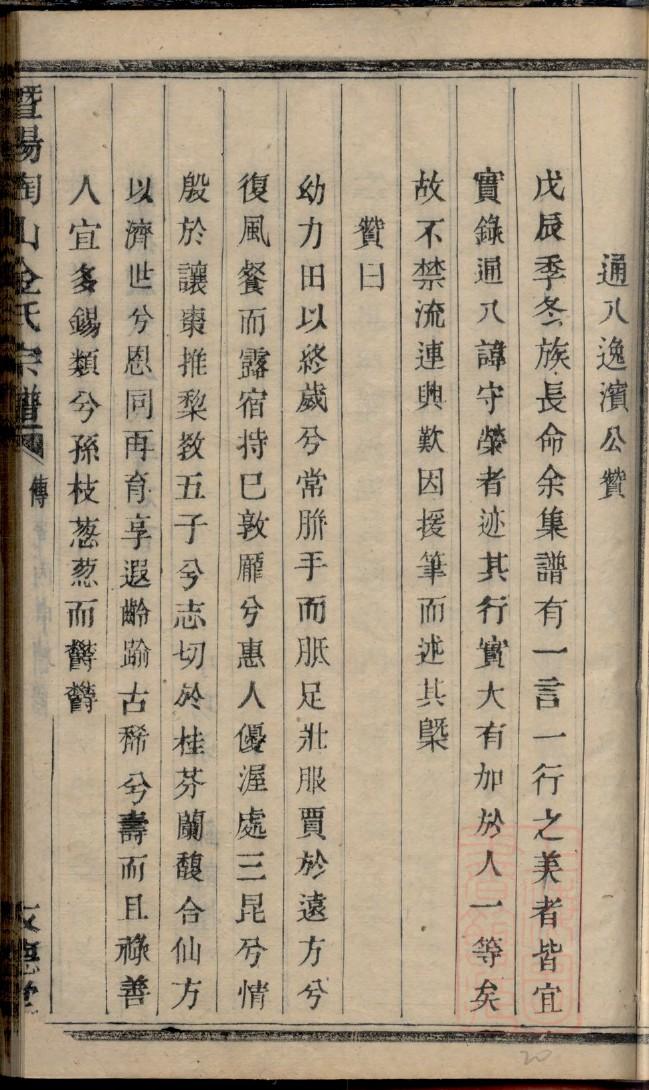 通八逸濱公贊
戊辰季冬族長命余集譜有一言一行之美者皆宜
實錄通八諱守榮者迹其行實大有加於人一等矣
故不禁流連興歎因援筆而述其槩
贊曰
幼力田以終歲兮常胼手而胝足壯服賈於遠方兮
復風餐而露宿持己敦龐兮惠人優渥處三昆兮情
殷於讓棗推棃教五子兮志切於桂芬蘭馥合仙方
以濟世兮恩同再育享遐齡踰古稀兮壽而且祿善
人宜多錫類兮孫枝葱葱而欝欝
暨陽陶山金氏宗譜 傳 友德堂
20